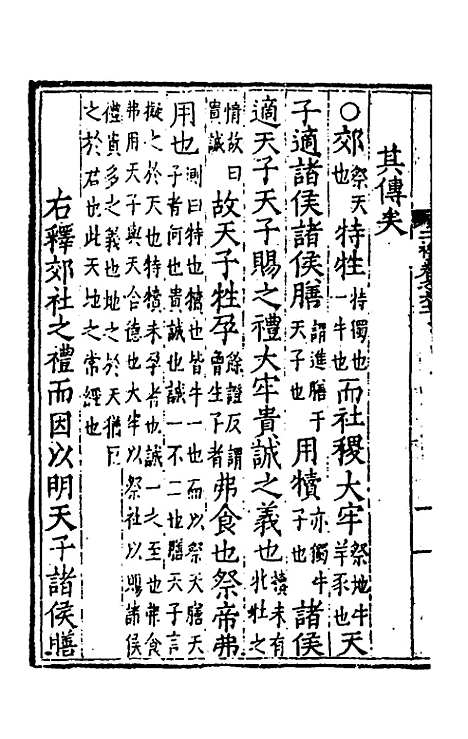 其傳矣
○郊祭天也特牲特獨也一牛也而社稷大牢祭地牛羊豕也天
子適諸侯諸侯膳謂進膳于天子也用犢亦獨牛子也諸侯
適天子天子賜之禮大牢貴誠之義也犢未有牝牡之
情故曰貴誠故天子牲孕餘證反謂曾生子者弗食也祭帝弗
用也測曰特也犢也皆牛一也而以祭天膳天
子者何也貴誠也誠一不二也膳天子言
擬之於天也特犢未孕者也誠一之至也弗食
弗用天子與天合德也大牢以祭社以賜諸侯
禮貴多之義也地之於天猶臣
之於君也此天地之常經也
右釋郊社之禮而因以明天子諸侯膳